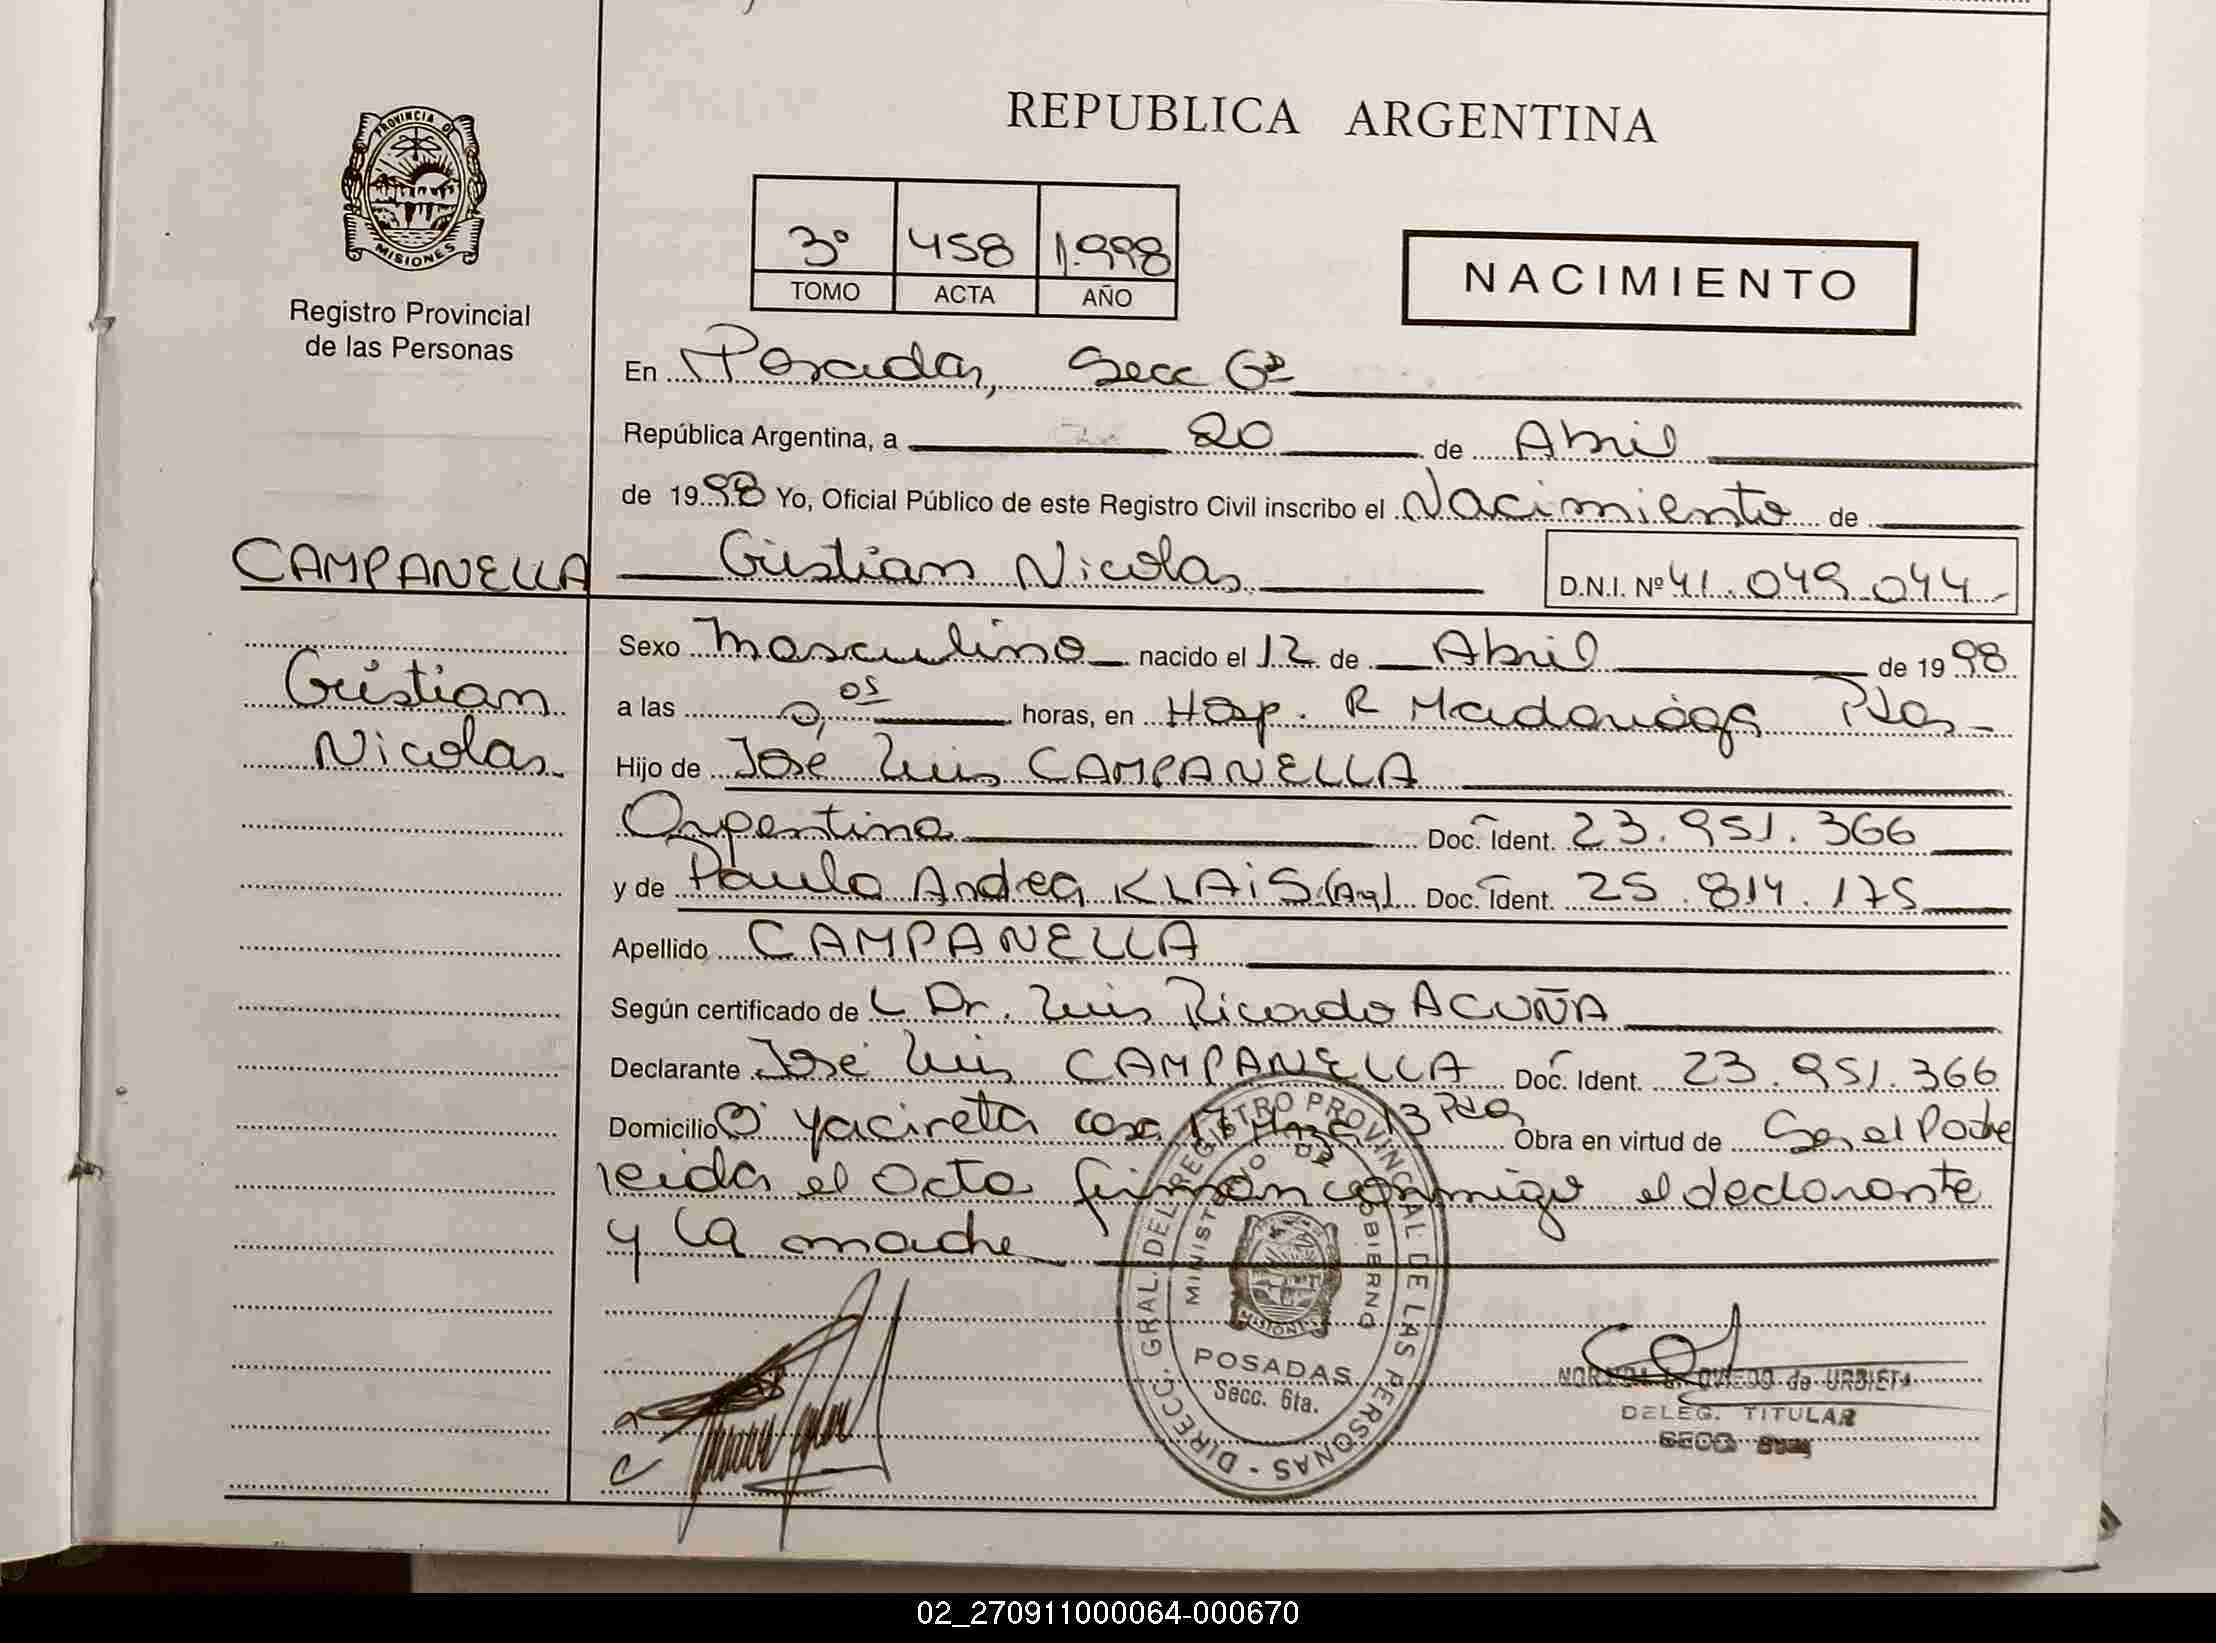 REPUBLICA ARGENTINA
PROVINCIA D
MISIONES
Registro Provincial
de las Personas
3º 458 1.998
TOMO ACTA AÑO
NACIMIENTO
En Posadas, Secc 6ª
República Argentina, a 20 de Abril
de 1998 Yo, Oficial Público de este Registro Civil inscribo el Nacimiento de
CAMPANELLA Cristian Nicolas D.N.I. Nº 41.049.044
Cristian
Nicolas
Sexo Masculino nacido el 12 de Abril de 1998
a las 0,05 horas, en Hosp. R Madariaga Pdas
Hijo de José Luis CAMPANELLA
Argentino Doc. Ident. 23.951.366
y de Paula Andrea KLAiS (Arg) Doc. Ident. 25.814.175
Apellido CAMPANELLA
Según certificado de Dr. Luis Ricardo ACUÑA
Declarante José Luis CAMPANELLA Doc. Ident. 23.951.366
Domicilio Yacireta casa 17 13 Pdas Obra en virtud de Ser el Padre
leida el acta firman conmigo el declarante
y la madre
DIRECC. GRAL. DEL REGISTRO PROVINCIAL DE LAS PERSONAS
MINISTERIO DE GOBIERNO
MISIONES
POSADAS
Secc. 6ta.
OVIEDO de URBIETA
DELEG. TITULAR
SECC
02_270911000064-000670